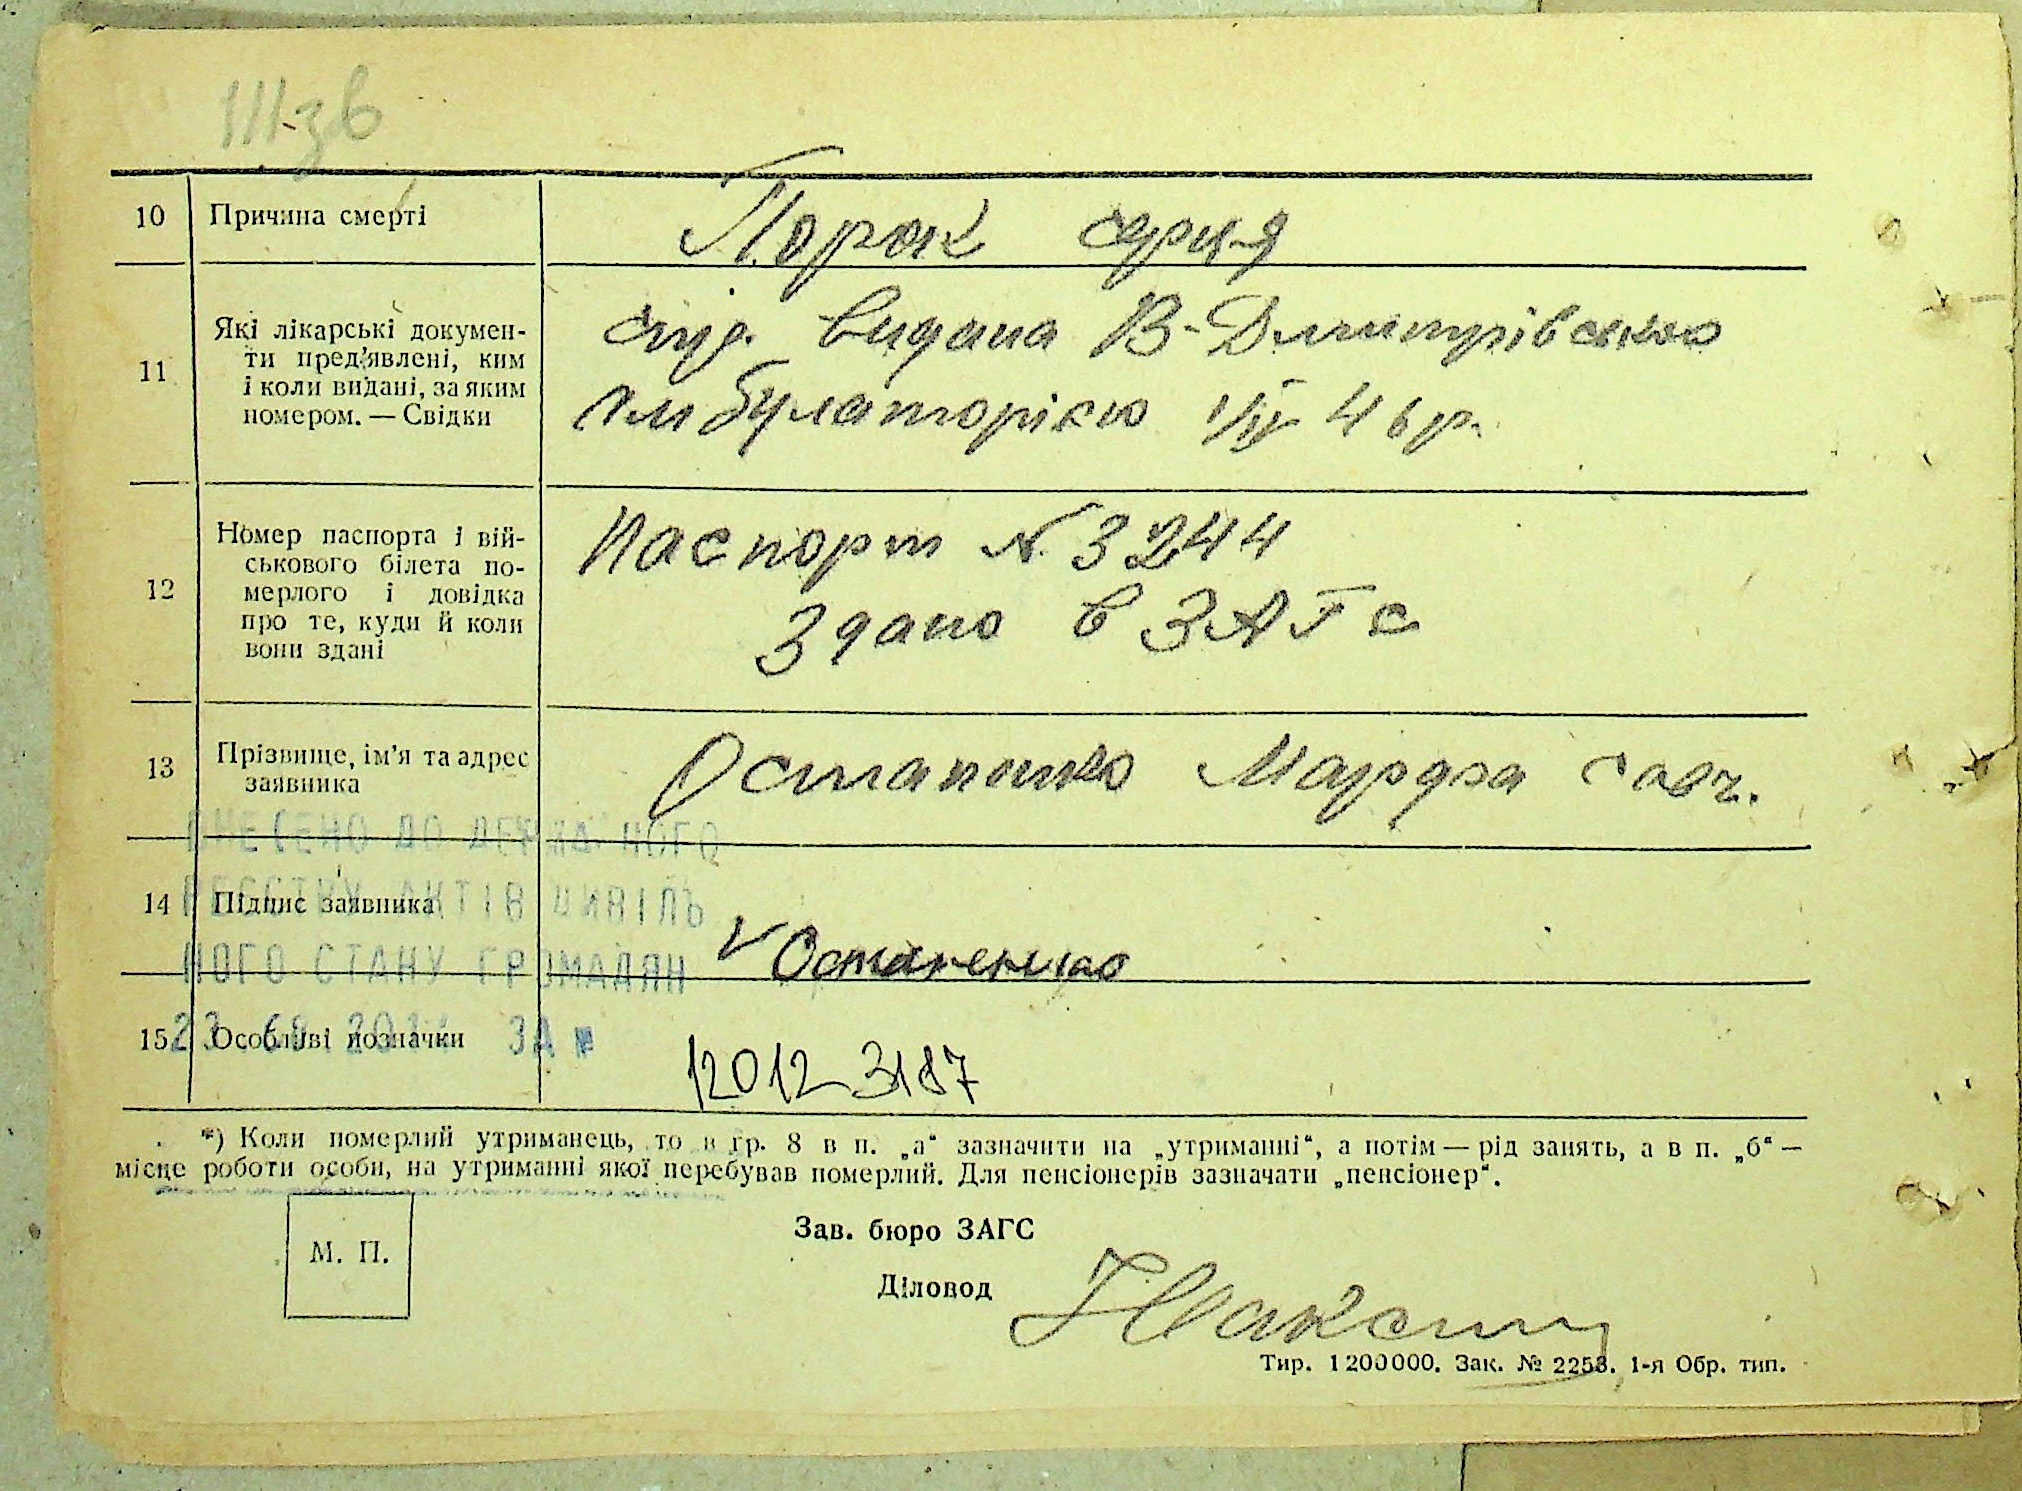 III-зв
10 Причина смерті Порок серця
11 Які лікарські докумен-
ти пред'явлені, ким
і коли видані, за яким
номером. — Свідки
видана В-Дмитрівською
Амбулаторією 1/IV 46р.
12 Номер паспорта і вій-
ськового білета по-
мерлого і довідка
про те, куди й коли
вони здані
Паспорт N 3244
Здано в ЗАГс
13 Прізвище, ім'я та адрес
заявника
Остапенко
ВНЕСЕНО ДО ДЕРЖАВНОГО
РЕЄСТРУ АКТІВ ЦИВІЛЬ
НОГО СТАНУ ГРОМАДЯН
14 Підпис заявника
Остапенко
15 Особливі позначки
12012 3187
ЗА №
*) Коли померлий утриманець, то в гр. 8 в п. „а“ зазначити на „утриманні“, а потім — рід занять, а в п. „б“ —
місце роботи особи, на утриманні якої перебував померлий. Для пенсіонерів зазначати „пенсіонер“.
М. П.
Зав. бюро ЗАГС
Діловод
Тир. 1200000. Зак. № 2253. 1-я Обр. тип.